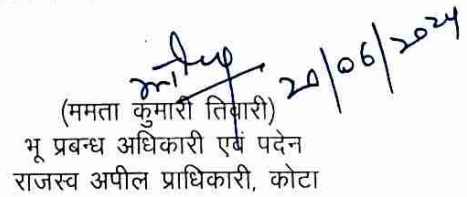 20/06/2024
(ममता कुमारी तिवारी)
भू प्रबन्ध अधिकारी एवं पदेन
राजस्व अपील प्राधिकारी, कोटा